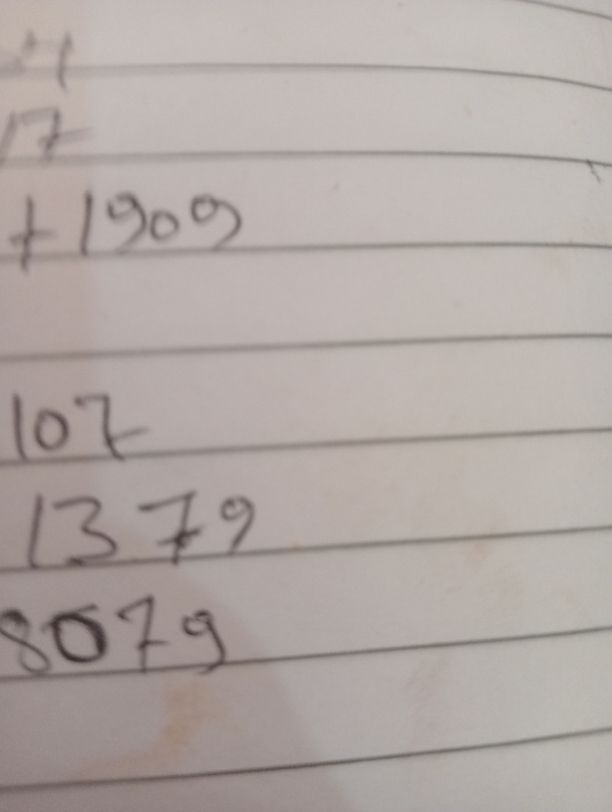 17
+1909
107
1379
8079